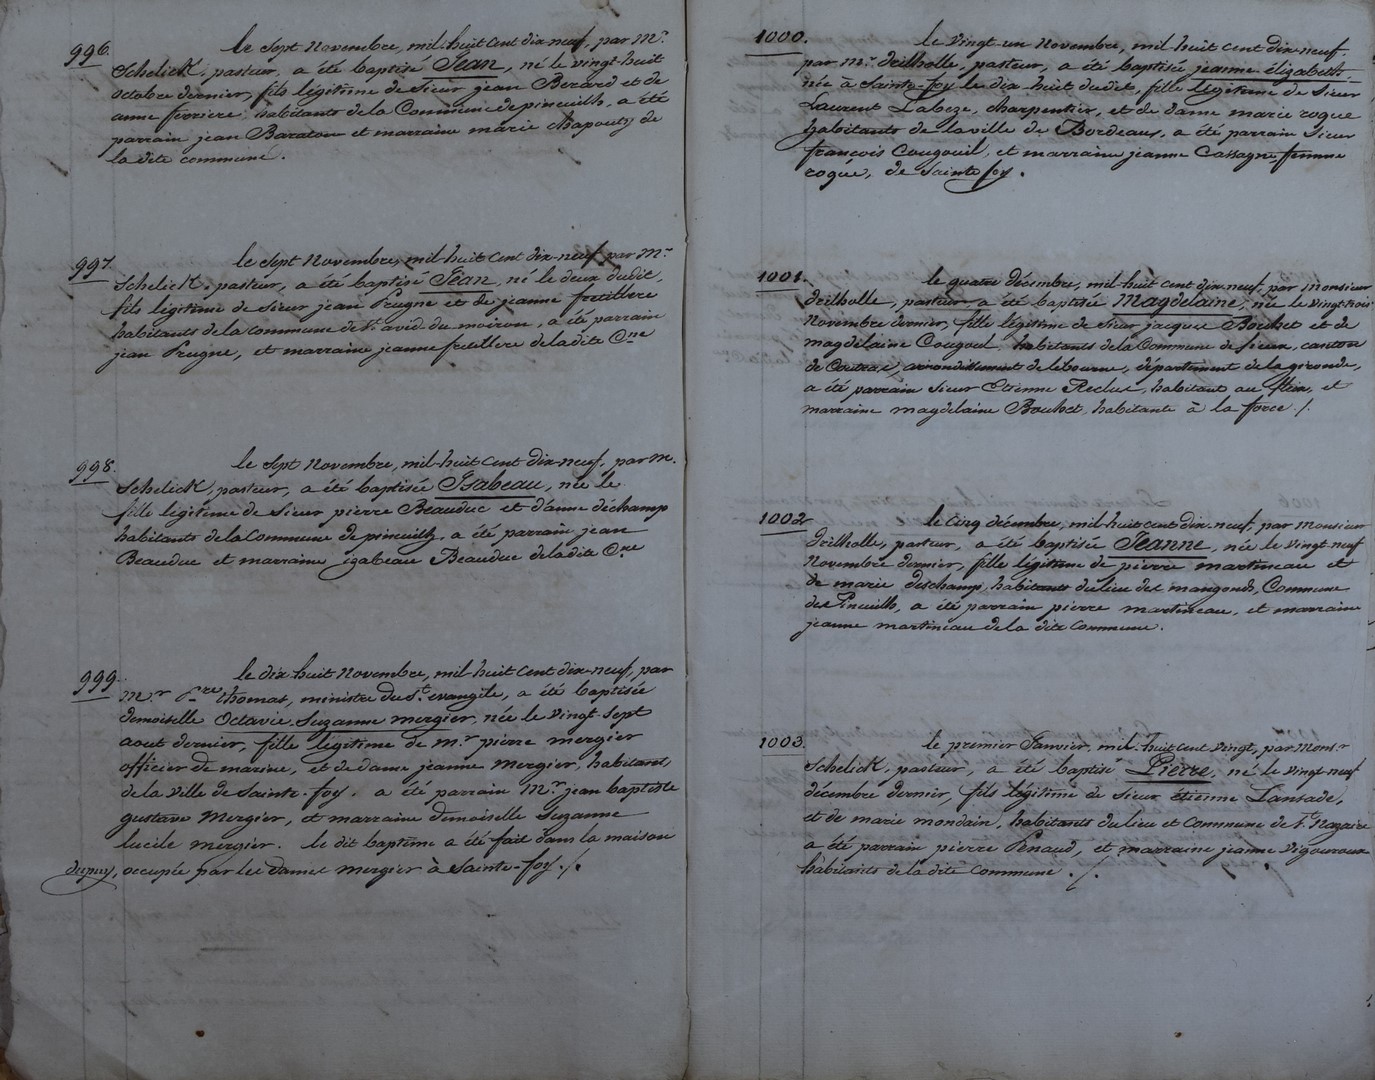 996. le sept Novembre, mil-huit cent dix-neuf, par Mr.
Schelick, pasteur, a été baptisé Jean, né le vingt-huit
octobre dernier, fils légitime de Sieur jean Berard et de
anne ferriere, habitants de la Commune de pineuilh, a été
parrain jean Baraton et marraine marie chapouty de
la dite commune.
997. le sept Novembre, mil-huit cent dix-neuf, par Mr.
Schelick, pasteur, a été baptisé Jean, né le deux dudit,
fils légitime de sieur jean Prugne et de jeanne fretillere
habitants de la commune de St. avid du moiron, a été parrain
jean Prugne, et marraine jeanne fretillere de la dite Cne
998. le sept Novembre, mil-huit cent dix-neuf, par M.
Schelick, pasteur, a été baptisée Isabeau, née le
fille légitime de Sieur pierre Beauduc et d'anne déchamp
habitants de la Commune de pineuilh, a été parrain jean
Beauduc et marraine izabeau Beauduc de la dite Cne
999. le dix huit Novembre, mil-huit cent dix-neuf, par
Mr. thomas, ministre du St. evangile, a été baptisée
demoiselle Octavie Suzanne mergier, née le vingt-sept
aout dernier, fille légitime de mr. pierre mergier
officier de marine, et de dame jeanne mergier, habitants
de la ville de Sainte-foy. a été parrain Mr. jean baptiste
gustave Mergier, et marraine demoiselle Suzanne
lucile mergier. le dit baptême a été fait dans la maison
dupuy, occupée par les dames mergier à Sainte-foy./.
1000. le vingt-un Novembre, mil-huit cent dix-neuf
par mr. drilholle, pasteur, a été baptisée jeanne élizabeth
née à Sainte-foy le dix huit dudit, fille légitime de Sieur
Laurent Labeze, charpentier, et de dame marie roque
habitants de la ville de Bordeaux, a été parrain Sieur
françois Cougouil, et marraine jeanne Cassagne femme
roque, de Sainte foy.
1001. le quatre décembre, mil-huit cent dix-neuf, par monsieur
drilholle, pasteur a été baptisée Magdelaine, née le vingt-trois
Novembre dernier, fille légitime de sieur jacques Bouhet et de
magdelaine Cougoul habitants de la Commune de canton
de Coutras, arrondissement de libourne, département de la gironde,
a été parrain sieur Etienne Reclus, habitant au fleix, et
marraine magdelaine Bouhet, habitante à la force ./.
1002 le cinq décembre, mil-huit cent dix-neuf, par monsieur
drilholle, pasteur, a été baptisée Jeanne, née le vingt-neuf
Novembre dernier, fille légitime de pierre martineau et
de marie deschamp, habitants du lieu des mangonds, Commune
des Pineuilh, a été parrain pierre martineau, et marraine
jeanne martineau de la dite commune.
1003. le premier Janvier, mil-huit cent vingt, par Monsr
Schelick, pasteur, a été baptisé Pierre, né le vingt-neuf
décembre dernier, fils légitime de sieur étienne Lansade,
et de marie mondain, habitants du lieu et Commune de St. Nazaire
a été parrain pierre Penaud, et marraine jeanne vigouroux
habitants de la dite Commune ./.